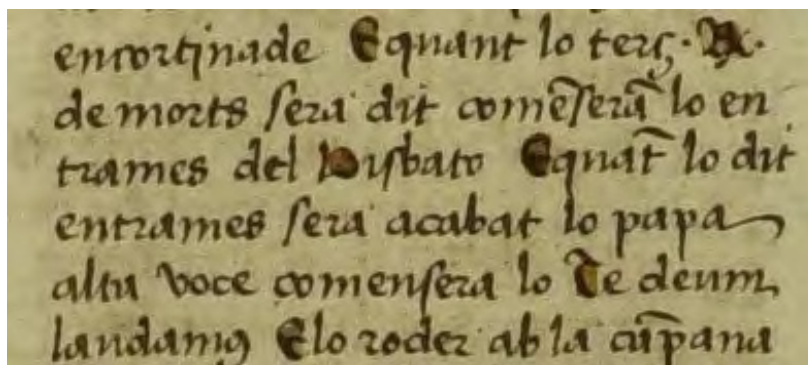 encortinade Equant lo terç · R ·
de morts sera dit comēserā lo en
trames del bisbato Equāt lo dit
entrames sera acabat lo papa
alta voce comensera lo Te deum
laudamꝯ Elo roder ab la cāpana